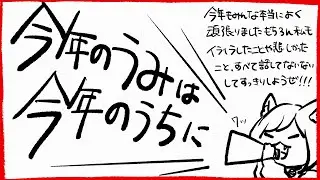 今年のうみは
今年のうちに
今年もみんな本当によく
頑張りましたもちろん私も
イライラしたことや悲しかった
こと、すべて話してないない
してすっきりしようぜ!!!
ワッ